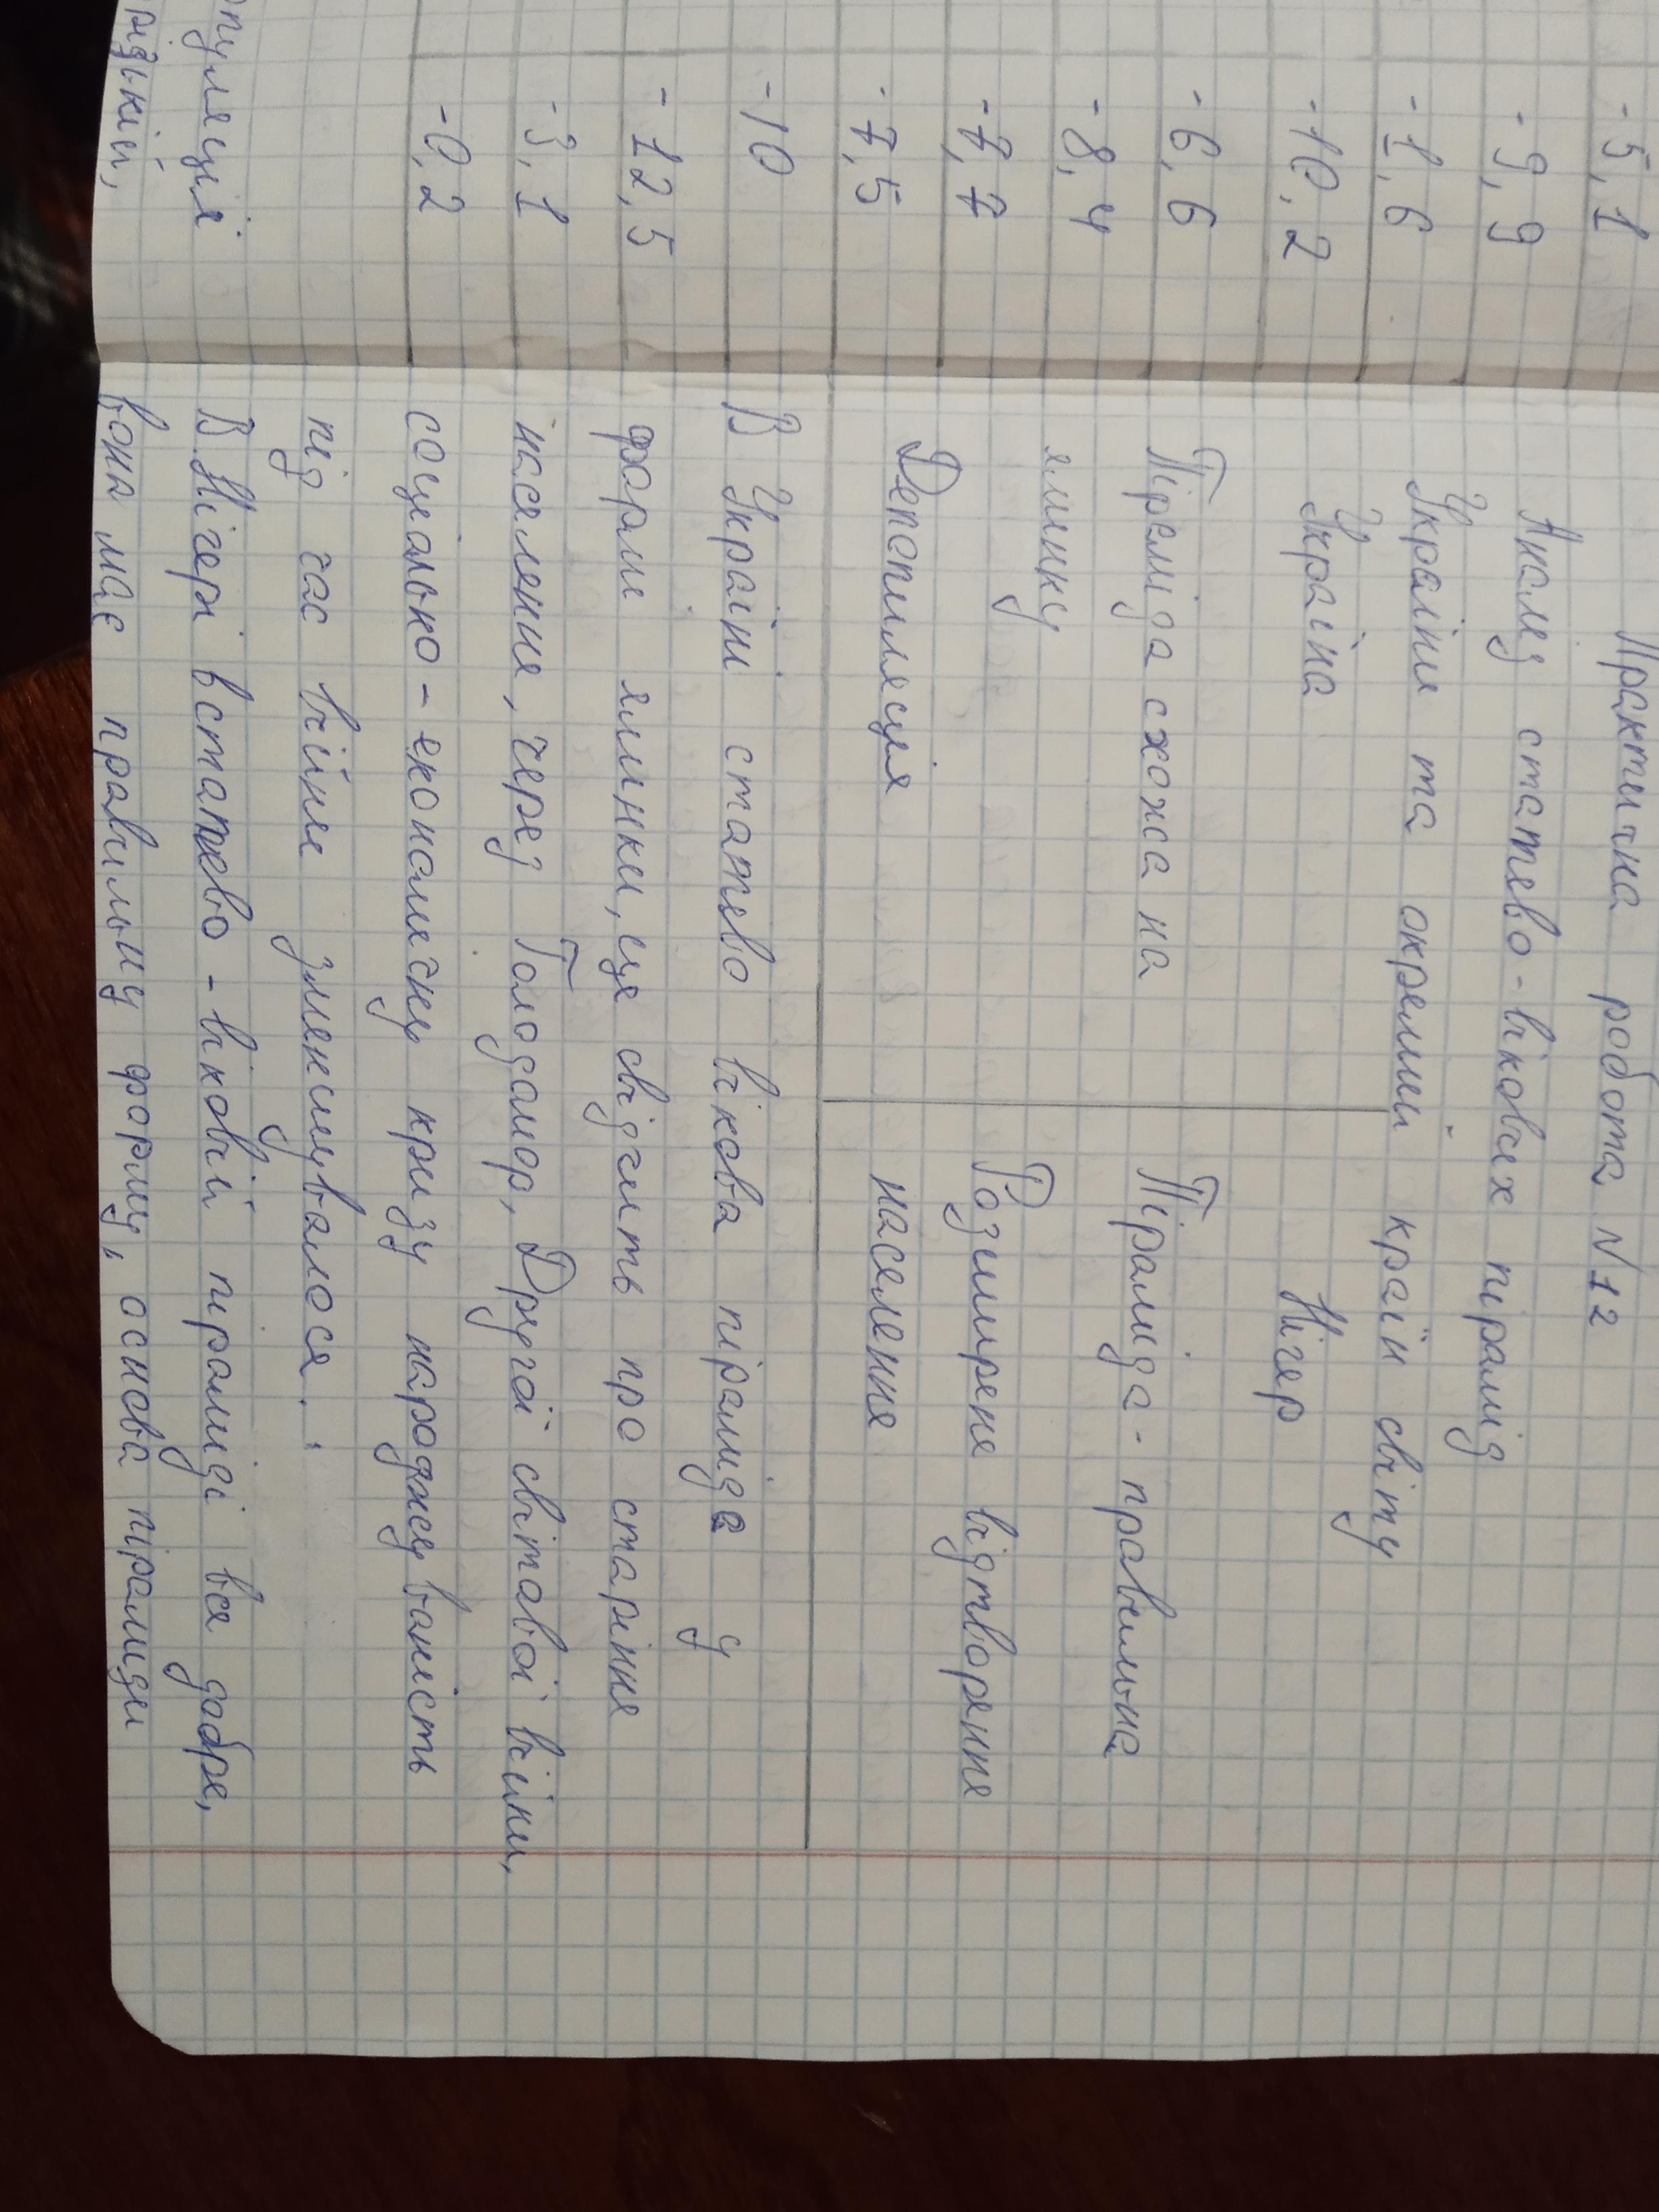 -5,1
-9,9
-1,6
-10,2
-6,6
-8,4
-7,7
-7,5
-10
-12,5
-3,1
-0,2
Практична робота N12
Аналіз статево-вікових пірамід
України та окремий країн світу
Україна Нігер
Піраміда схожа на
ялинку
Депопуляція
Піраміда - правильна
Розширене відтворення
населення
В Україні статево вікова піраміда у
форми ялинки, це свідчить про старіння
населення, через Голодомор, Другої світової війни,
соціально-економічну кризу народжуваність
під час війни зменшувалося.
В Нігері в статево-віковій піраміді все добре,
вона має правильну форму, основа піраміди